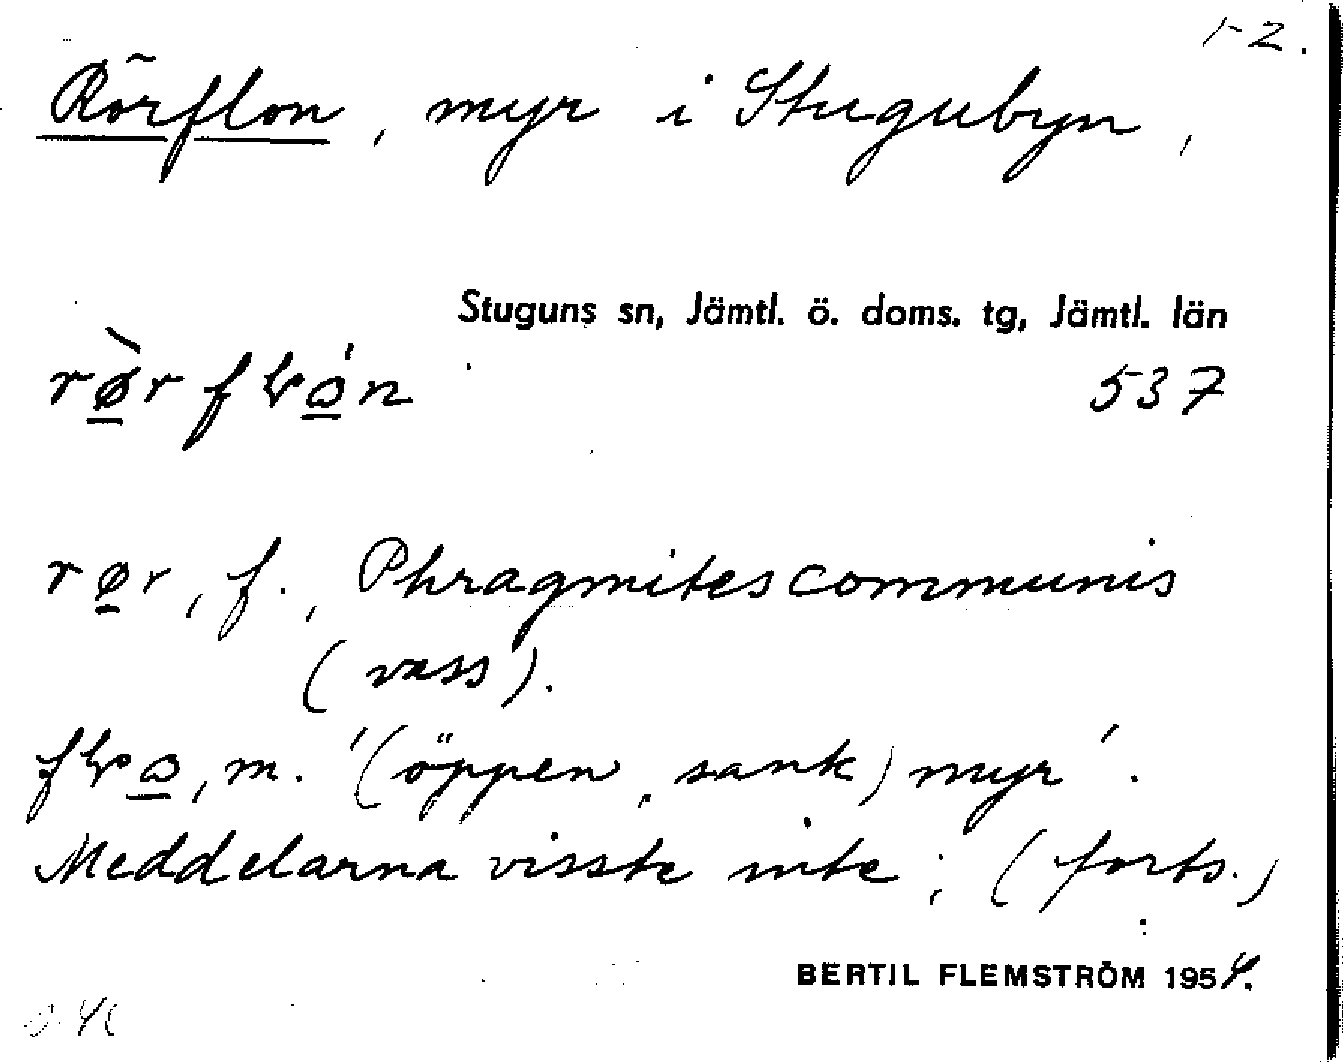 1-2.
Rörflon, myr i Stugubyn,
Stuguns sn, Jämtl. ö. doms. tg, Jämtl. län
537
rør, f., Phragmites communis
(vass).
m. '(öppen, sank) myr'.
Meddelarna visste inte; (forts.)
BERTIL FLEMSTRÖM 1954.